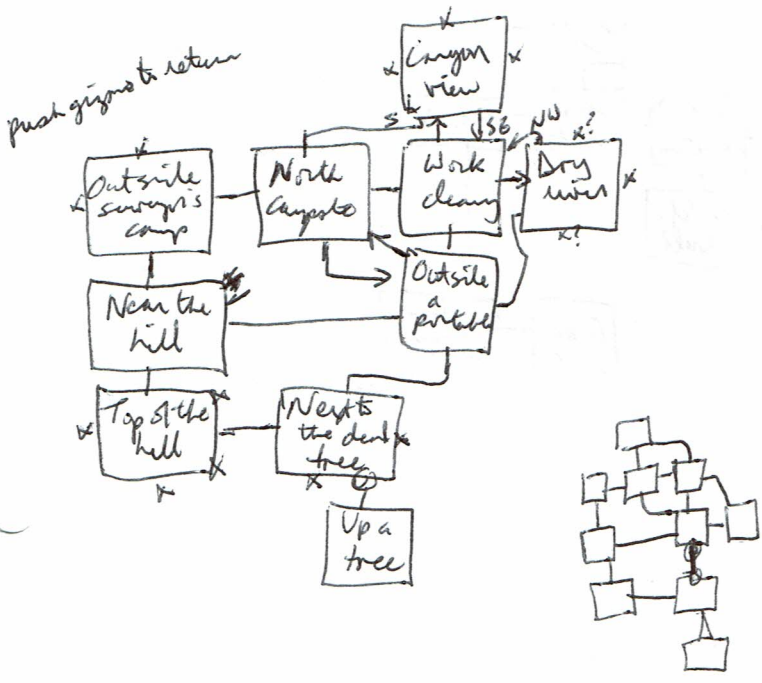 push gizmo to return
Canyon
view
S
SE
NW
x?
Outside
surveyor's
camp
North
Work
Dry
river
x?
Near the
hill
Outside
a
portable
Top of the
hill
Next to
the dead
tree
Up a
tree